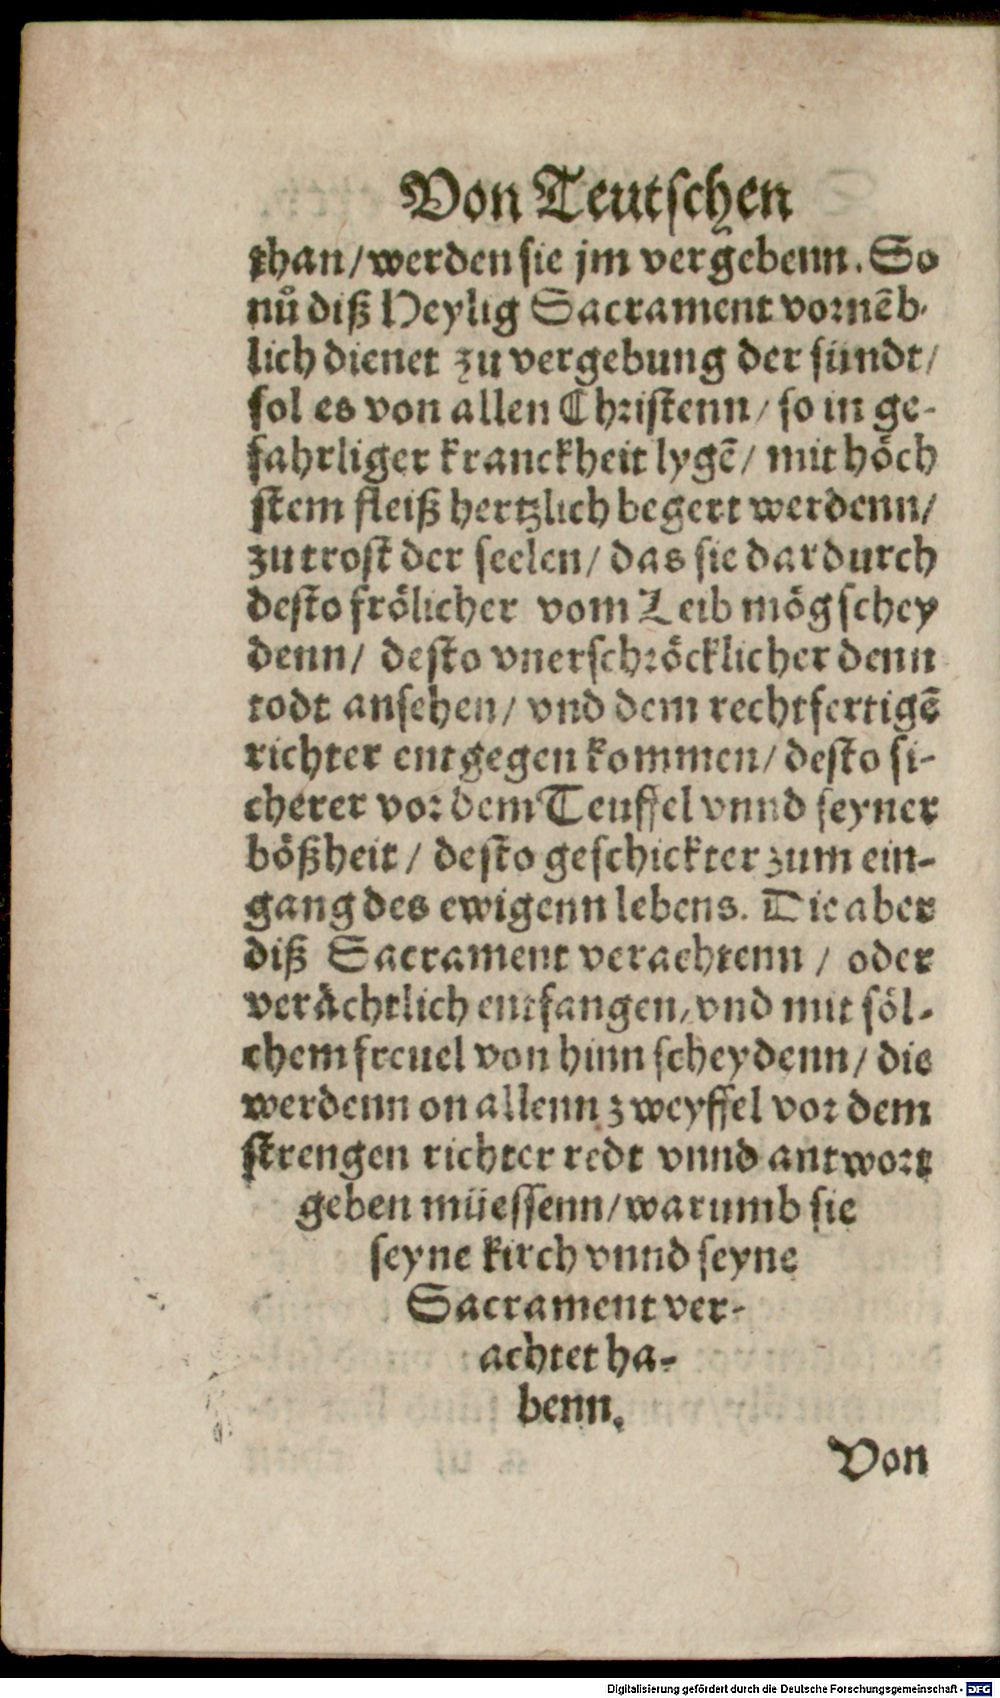 Von Teutschen
than/ werden sie jm vergebenn. So
nů diß Heylig Sacrament vornẽb-
lich dienet zu vergebung der sündt/
sol es von allen Christenn/ so in ge-
fahrliger kranckheit lygẽ/ mit höch
stem fleiß hertzlich begert werdenn/
zu trost der seelen/ das sie dardurch
desto frölicher vom Leib mög schey
denn/ desto vnerschröcklicher denn
todt ansehen/ vnd dem rechtfertigẽ
richter entgegen kommen/ desto si-
cherer vor dem Teuffel vnnd seyner
bößheit/ desto geschickter zum ein-
gang des ewigenn lebens. Die aber
diß Sacrament verachtenn/ oder
verächtlich entfangen/ vnd mit söl-
chem freuel von hinn scheydenn/ die
werdenn on allenn zweyffel vor dem
strengen richter redt vnnd antwort
geben müessenn/ warumb sie
seyne kirch vnnd seyne
Sacrament ver-
achtet ha-
benn.
Von
Digitalisierung gefördert durch die Deutsche Forschungsgemeinschaft - DFG